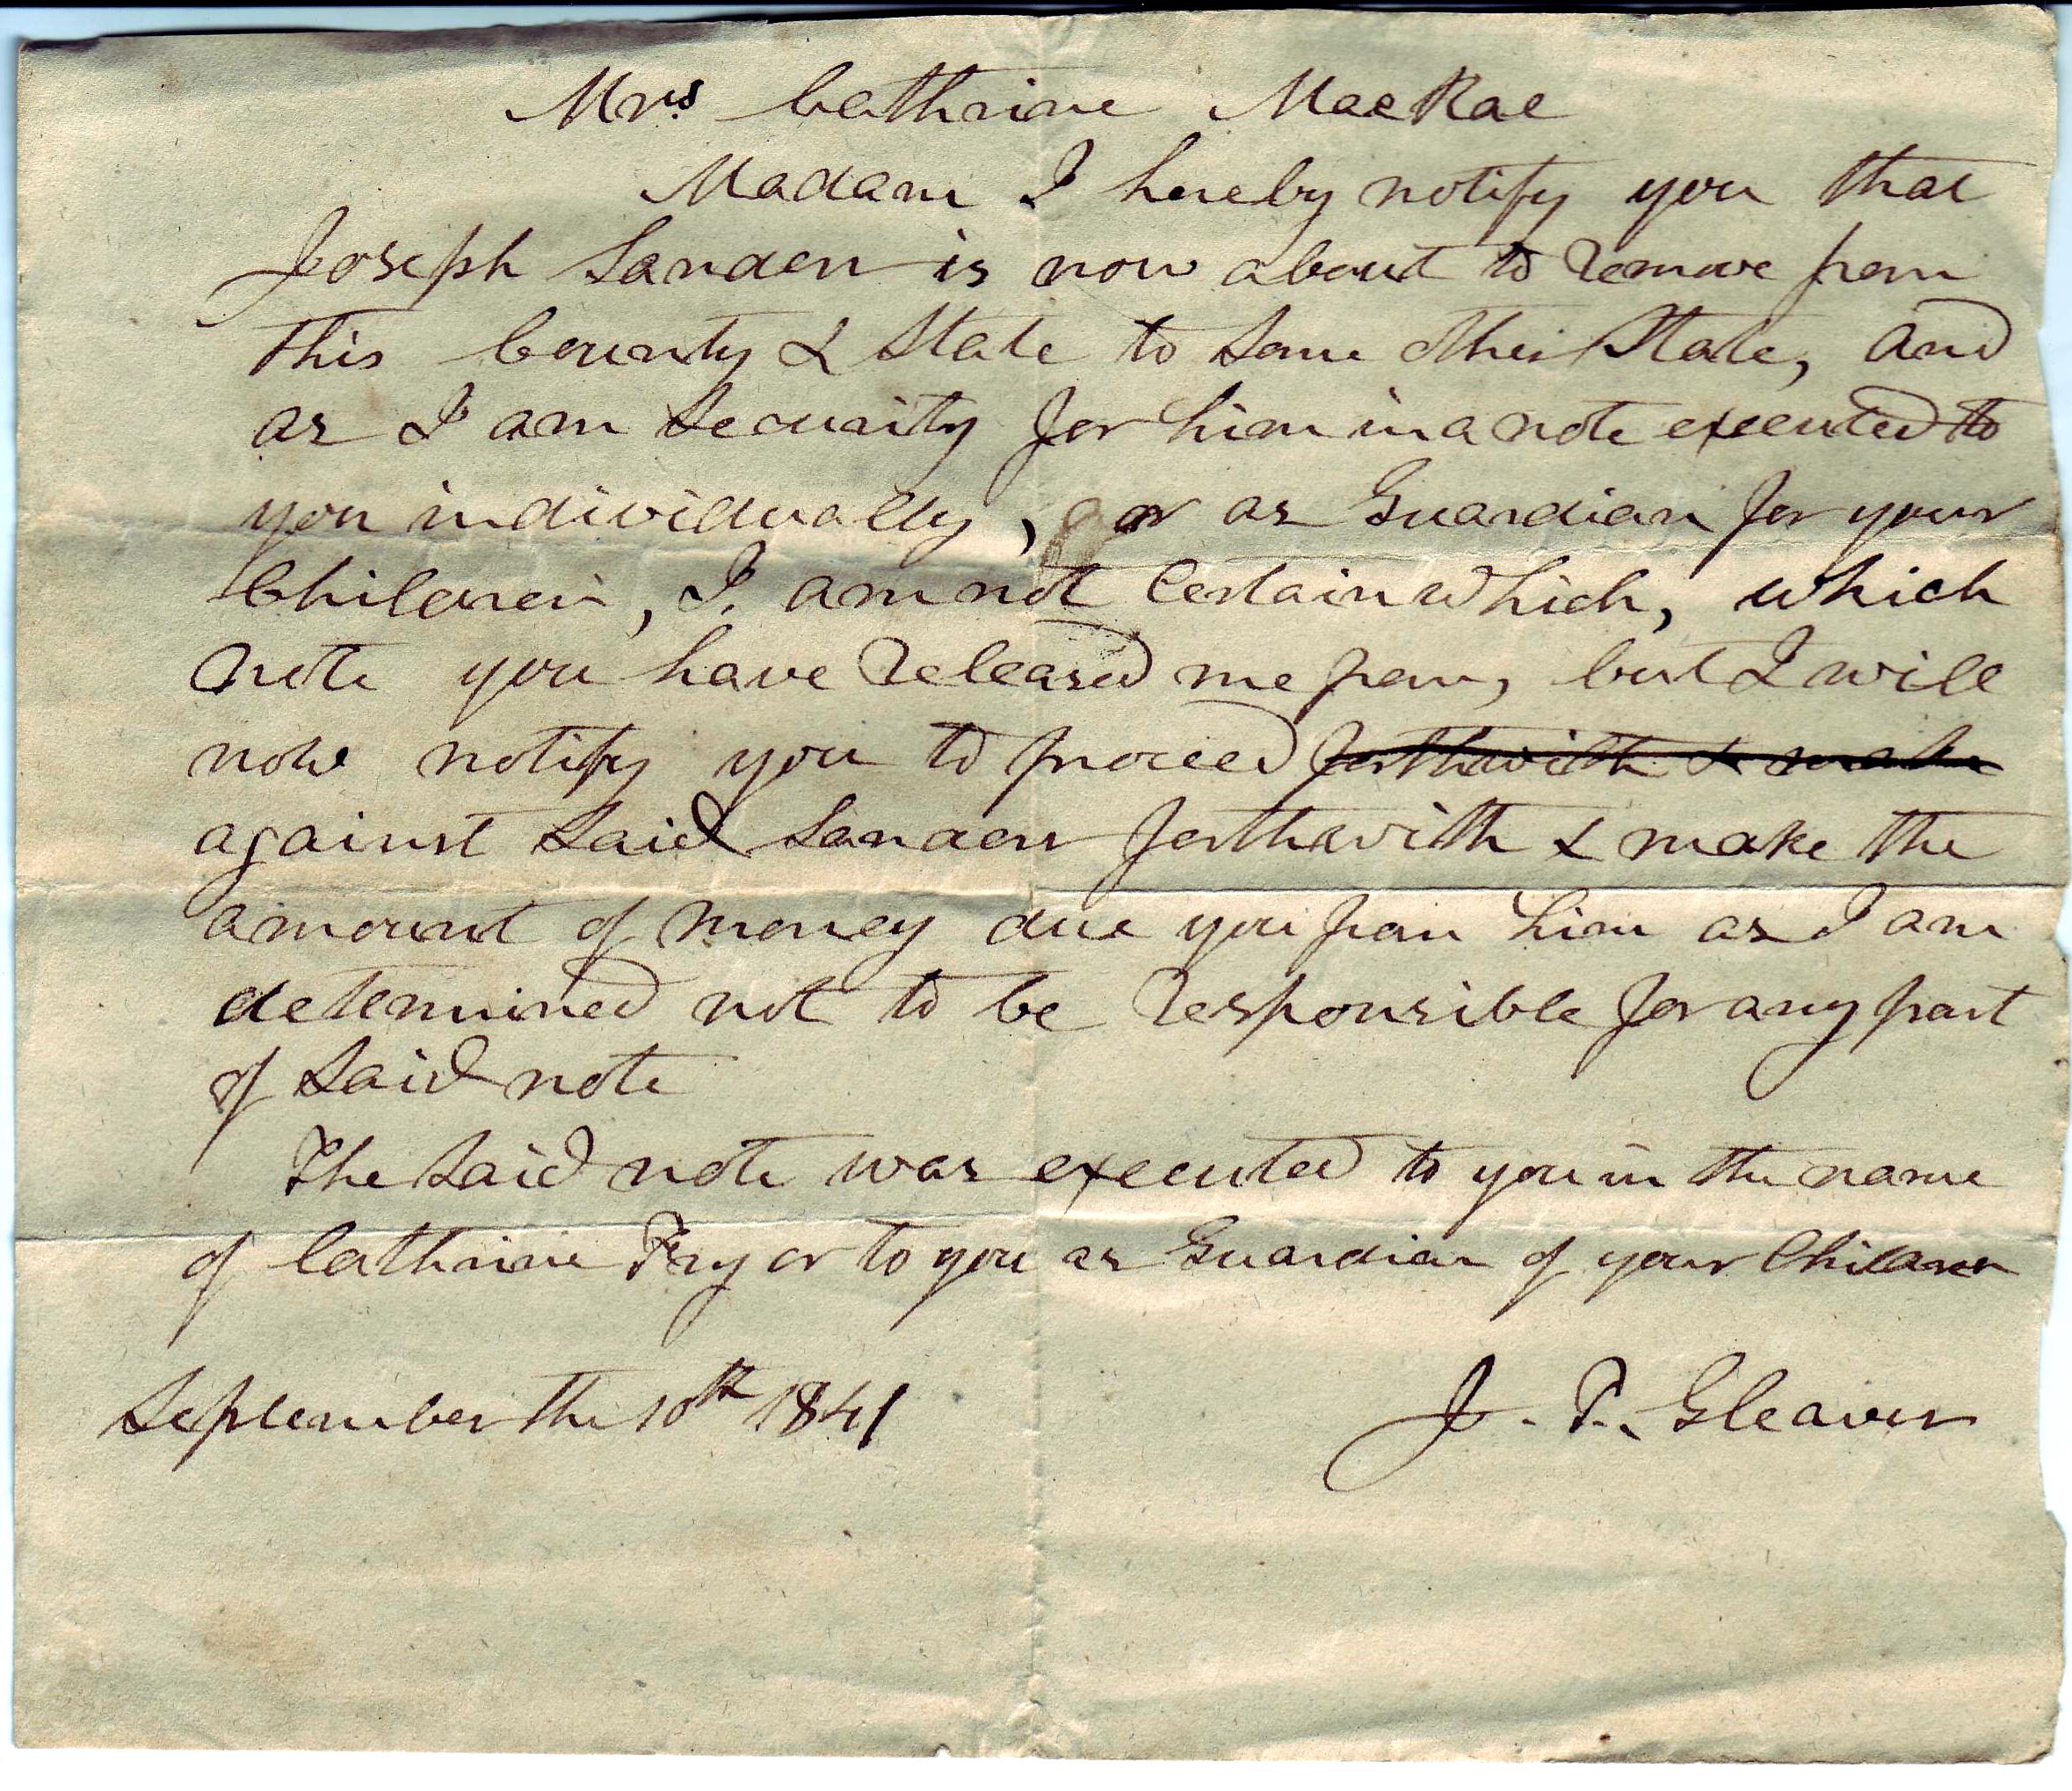 Mrs. Cathrine MacRae
Madam I hereby notify you that
Joseph Sanders is now about to remove from
this County & State to some other State, and
as I am security for him in a note executed to
you individually, or as Guardian for your
Children, I am not certain which, which
note you have released me from, but I will
now notify you to proceed forthwith & make
against said Sanders forthwith & make the
amount of money due you from him as I am
determined not to be responsible for any part
of said note
The said note was executed to you in the name
of Cathrine Fry or to you as Guardian of your Children
September the 10th 1841
J. T. Gleaver